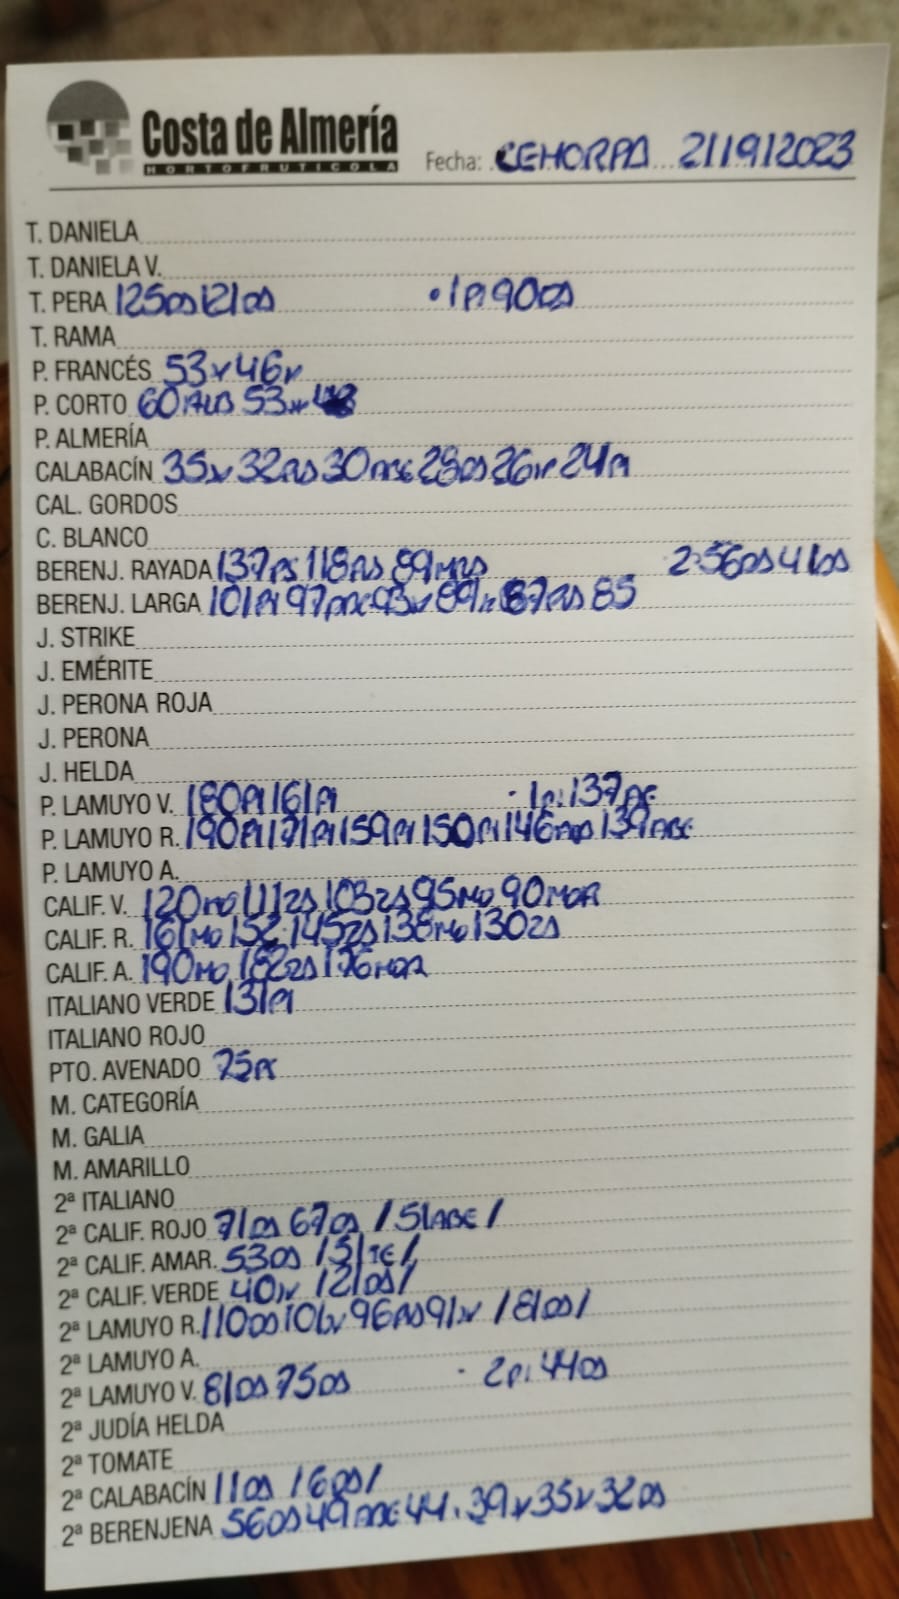 Costa de Almería
HORTOFRUTICOLA
Fecha: CEHORPA 21/9/2023
T. DANIELA
T. DANIELA V.
T. PERA 125DS 121DS · 1Pi 90DS
T. RAMA
P. FRANCÉS 53v 46v
P. CORTO 60 53
P. ALMERÍA
CALABACÍN 35v 32AS 30ABE 28DS 26v 24Pi
CAL. GORDOS
C. BLANCO
BERENJ. RAYADA 137PS 118AS 89 2·56DS 41DS
BERENJ. LARGA 101Pi 97ABE 93v 89v 87AS 85
J. STRIKE
J. EMÉRITE
J. PERONA ROJA
J. PERONA
J. HELDA
P. LAMUYO V. 180Pi 161Pi · 1Pi 137
P. LAMUYO R. 190Pi 171Pi 159Pi 150Pi 146 139ABE
P. LAMUYO A.
CALIF. V. 120MO 111ZS 103ZS 95MO 90MOR
CALIF. R. 161MO 152· 145ZS 138MO 130ZS
CALIF. A. 190MO 182ZS 176MOR
ITALIANO VERDE 131Pi
ITALIANO ROJO
PTO. AVENADO 75
M. CATEGORÍA
M. GALIA
M. AMARILLO
2ª ITALIANO
2ª CALIF. ROJO 71DS 67DS /51ABE/
2ª CALIF. AMAR. 53DS /51TE/
2ª CALIF. VERDE 40v /21DS/
2ª LAMUYO R. 110DS 101v 96AS 91v /81DS/
2ª LAMUYO A.
2ª LAMUYO V. 81DS 75DS · 2Pi 44DS
2ª JUDÍA HELDA
2ª TOMATE
2ª CALABACÍN 11DS /6DS/
2ª BERENJENA 56DS 49ABE 44· 39v 35v 32DS